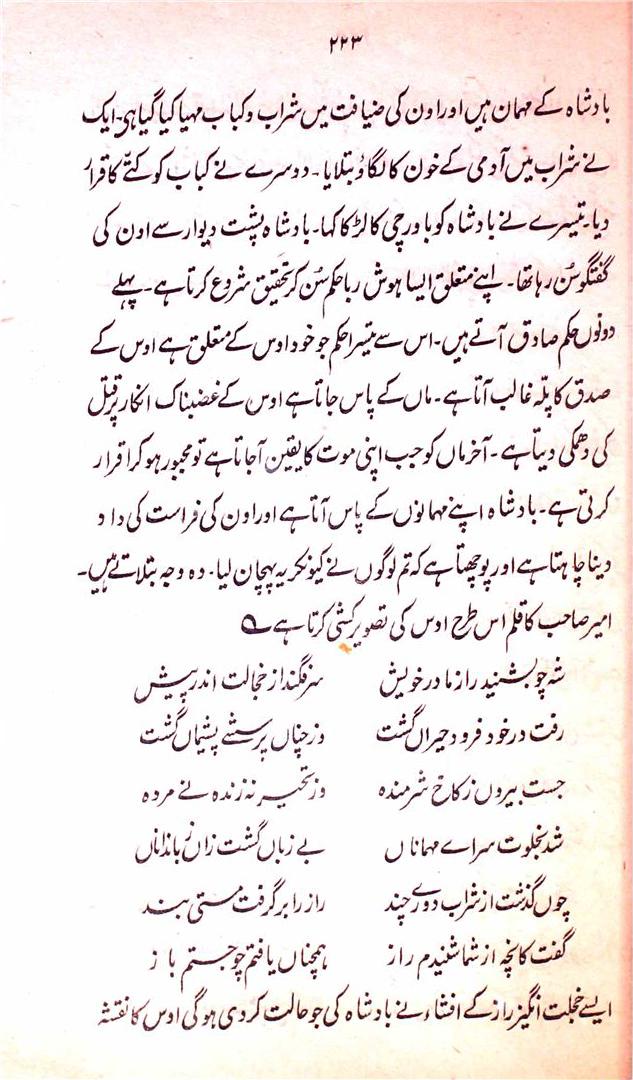 ۲۲۳
بادشاہ کے مہمان ہیں اور اون کی ضیافت میں شراب و کباب مہیا کیا گیا ہی۔ ایک
نے شراب میں آدمی کے خون کا لگاؤ بتلایا۔ دوسرے نے کباب کو کتّے کا قرار
دیا۔ تیسرے نے بادشاہ کو باورچی کا لڑکا کہا۔ بادشاہ پشت دیوار سے اون کی
گفتگو سُن رہا تھا۔ اپنے متعلق ایسا ہوش ربا حکم سُن کر تحقیق شروع کرتا ہے۔ پہلے
دونوں حکم صادق آتے ہیں۔ اس سے تیسرا حکم جو خود اوس کے متعلق ہے اوس کے
صدق کا پلّہ غالب آتا ہے۔ ماں کے پاس جاتا ہے اوس کے غضبناک انکار پر قتل
کی دھمکی دیتا ہے۔ آخر ماں کو جب اپنی موت کا یقین آجاتا ہے تو مجبور ہو کر اقرار
کرتی ہے۔ بادشاہ اپنے مہمانوں کے پاس آتا ہے اور اون کی فراست کی داد
دینا چاہتا ہے اور پوچھتا ہے کہ تم لوگوں نے کیونکر یہ پہچان لیا۔ وہ وجہ بتلاتے ہیں۔
امیر صاحب کا قلم اس طرح اوس کی تصویر کشی کرتا ہے
شہ چو بشنید راز مادر خویش سر فگند از خجالت اندر پیش
رفت در خود فرو و حیراں گشت وز چناں پرسشے پشیماں گشت
جست بیروں ز کاخ شرمندہ وز تحیر نہ زندہ نے مردہ
شد بخلوت سراے مہماناں بے زباں گشت زاں زباندانان
چوں گذشت از شراب دورے چند راز را بر گرفت مستی بند
گفت کانچہ از شما شنیدم راز ہمچناں یافتم چو جستم باز
ایسے خجلت انگیز راز کے افشاء نے بادشاہ کی جو حالت کر دی ہوگی اوس کا نقشہ